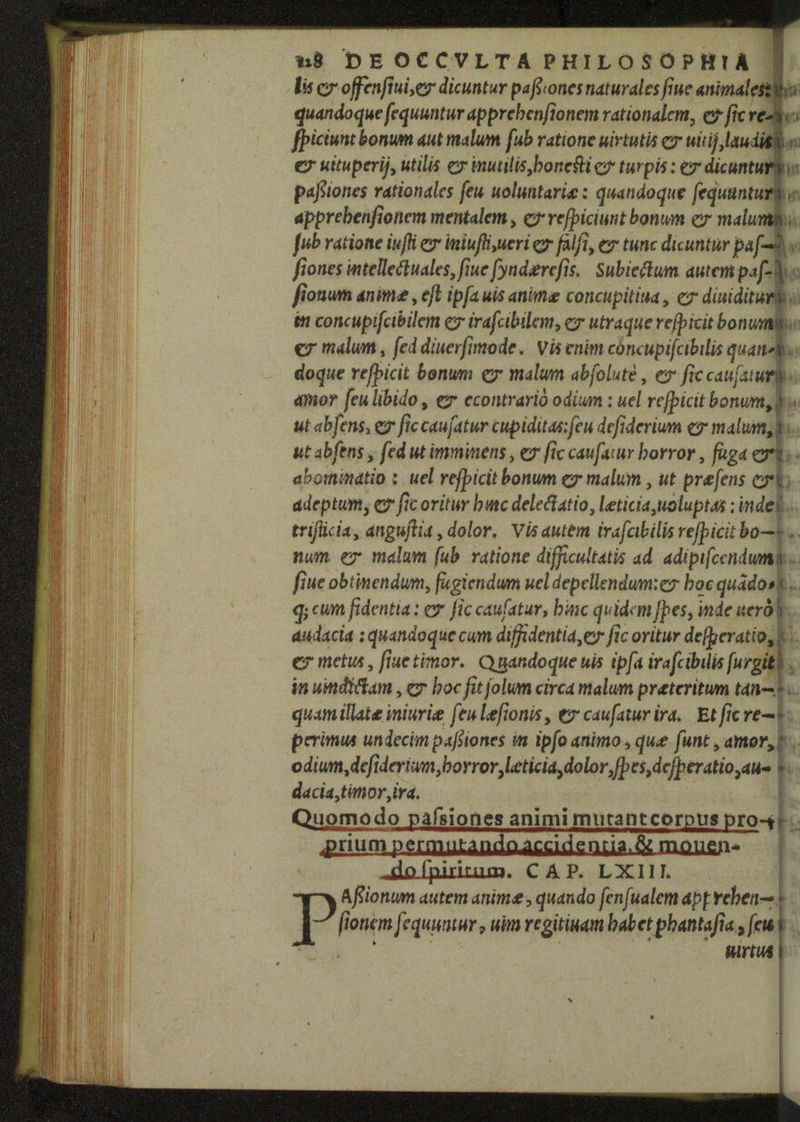 128 DE OCCVLTA PHILOSOPHIA
lis & offenſiui, & dicuntur paſsiones naturales ſiue animales:
quandoque ſequuntur apprehenſionem rationalem, & ſic re-
ſpiciunt bonum aut malum ſub ratione uirtutis & uitij, laudis
& uituperij, utilis & inutilis, honeſti & turpis: & dicuntur
paſsiones rationales ſeu uoluntariæ: quandoque ſequuntur
apprehenſionem mentalem, & reſpiciunt bonum & malum
ſub ratione iuſti & iniuſti, ueri & falſi, & tunc dicuntur paſ-
ſiones intellectuales, ſiue ſyndæreſis. Subiectum autem paſ-
ſionum animæ, eſt ipſa uis animæ concupitiua, & diuiditur
in concupiſcibilem & iraſcibilem, & utraque reſpicit bonum
& malum, ſed diuerſimode. Vis enim concupiſcibilis quan-
doque reſpicit bonum & malum abſolutè, & ſic cauſatur
amor ſeu libido, & econtrariò odium: uel reſpicit bonum,
ut abſens, & ſic cauſatur cupiditas: ſeu deſiderium & malum,
ut abſens, ſed ut imminens, & ſic cauſatur horror, fuga &
abominatio: uel reſpicit bonum & malum, ut præſens &
adeptum, & ſic oritur hinc delectatio, læticia, uoluptas: inde
triſticia, anguſtia, dolor. Vis autem iraſcibilis reſpicit bo-
num & malum ſub ratione difficultatis ad adipiſcendum
ſiue obtinendum, fugiendum uel depellendum: & hoc quādo-
q; cum fidentia: & ſic cauſatur, hinc quidem ſpes, inde uerò
audacia: quandoque cum diffidentia, & ſic oritur deſperatio,
& metus, ſiue timor. Quandoque uis ipſa iraſcibilis ſurgit
in uindictam, & hoc fit ſolum circa malum præteritum tan-
quam illatæ iniuriæ ſeu læſionis, & cauſatur ira. Et ſic re-
perimus undecim paſsiones in ipſo animo, quæ ſunt, amor,
odium, deſiderium, horror, læticia, dolor, ſpes, deſperatio, au-
dacia, timor, ira.
Quomodo paſsiones animi mutant corpus pro-
prium permutando accidentia, & mouen-
do ſpiritum. CAP. LXIII.
PAſsionum autem animæ, quando ſenſualem apprehen-
ſionem ſequuntur, uim regitiuam habet phantaſia, ſeu
uirtus